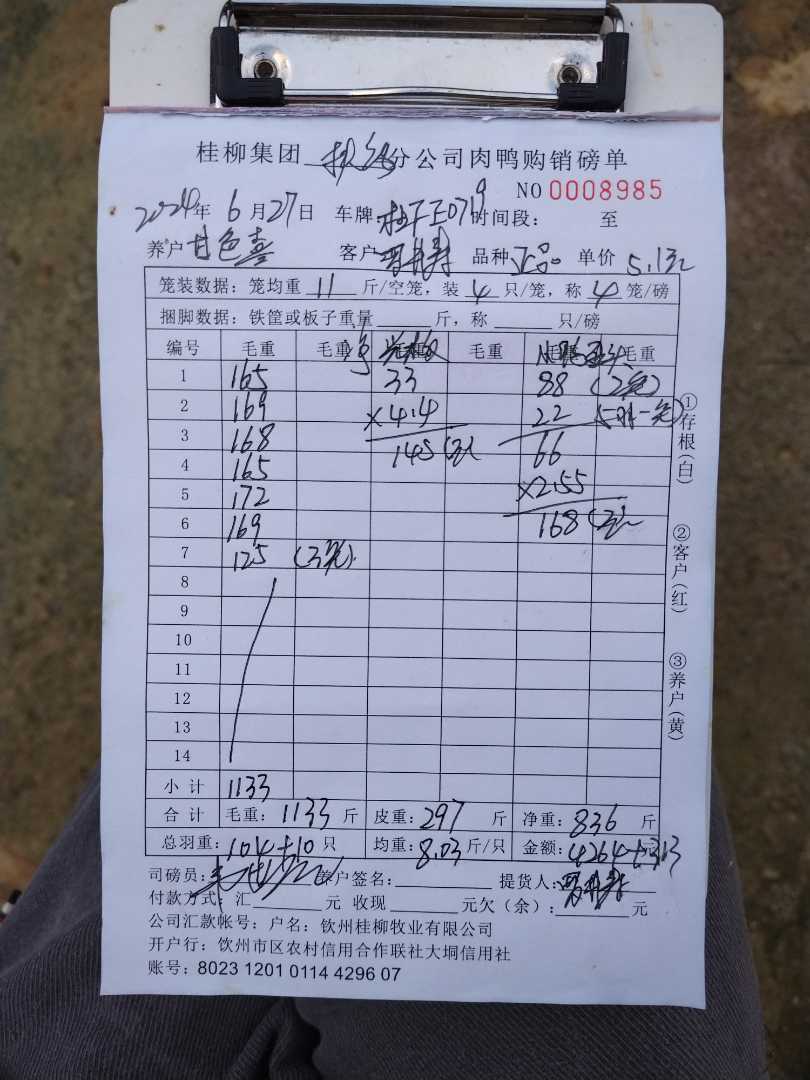 桂柳集团 分公司肉鸭购销磅单
NO 0008985
2024年 6月27日 车牌 0719 时间段: 至
养户 甘色喜 客户 品种 正品 单价 5.1元
笼装数据: 笼均重 11 斤/空笼, 装 4 只/笼, 称 4 笼/磅
捆脚数据: 铁筐或板子重量 斤, 称 只/磅
编号 毛重 毛重 毛重 毛重 毛重 毛重
1 165 33 88 (2笼)
2 169 ×4.4 22
3 168 145 66
4 165 ×2.55
5 172 168
6 169
7 125 (3笼)
8
9
10
11
12
13
14
小计 1133
合计 毛重: 1133 斤 皮重: 297 斤 净重: 836 斤
总羽重: 104+10 只 均重: 8.03 斤/只 金额: 4264+313
司磅员: 养户签名: 提货人:
付款方式: 汇 元 收现 元欠(余): 元
公司汇款帐号: 户名: 钦州桂柳牧业有限公司
开户行: 钦州市区农村信用合作联社大垌信用社
账号: 8023 1201 0114 4296 07
①存根(白)
②客户(红)
③养户(黄)